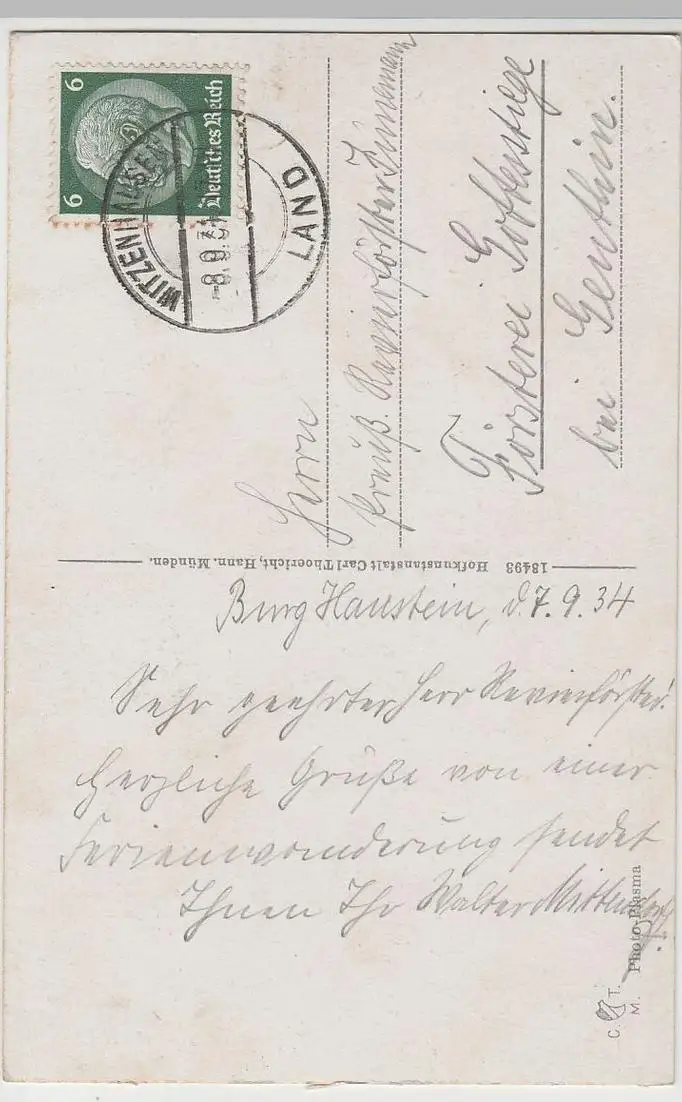 6 6
Deutsches Reich
WITZENHAUSEN LAND
-8.9.34
Herrn
Preuß. Revierförster
Försterei Gottesstiege
bei Genthin.
18493 Hofkunstanstalt Carl Thoericht, Hann. Münden.
Burg Hanstein, d. 7.9.34
Sehr geehrter Herr Revierförster!
Herzliche Grüße von einer
Ferienwanderung sendet
Ihnen Ihr Walter Mittendorf.
C. T.
M. Photo-Plasma